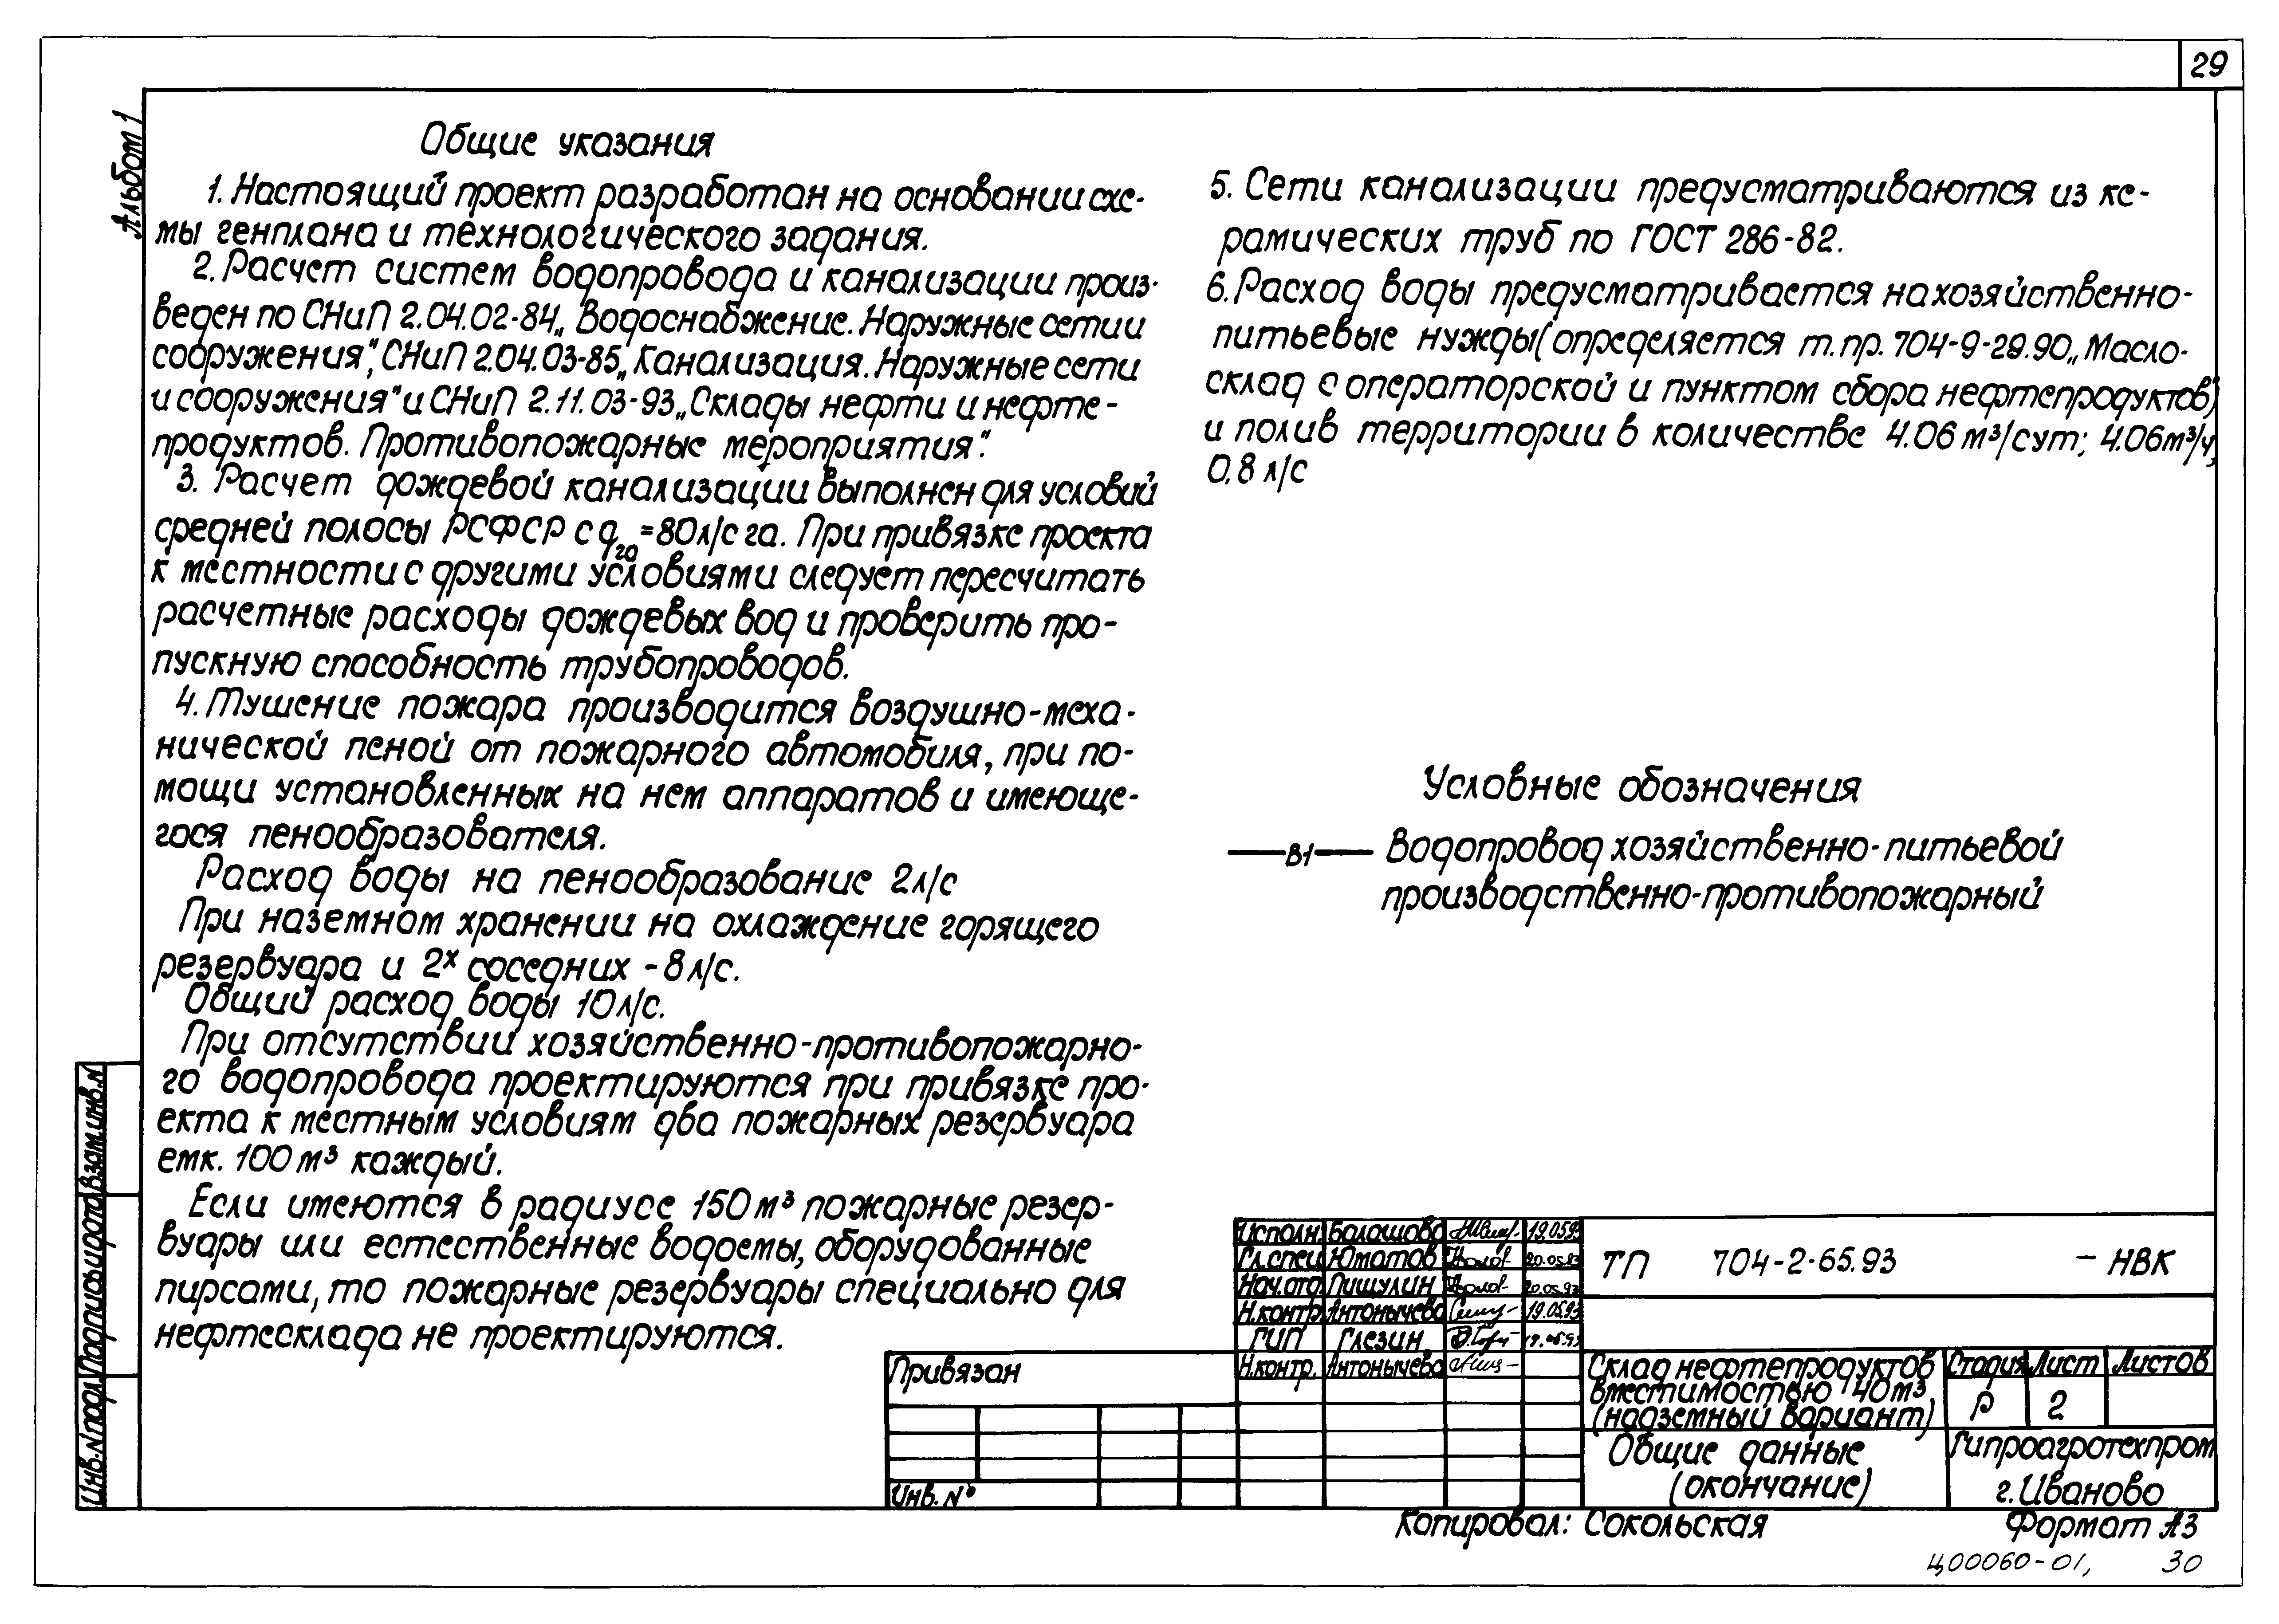 29
Альбом 1
Общие указания
1. Настоящий проект разработан на основании схе-
мы генплана и технологического задания.
2. Расчет систем водопровода и канализации произ-
веден по СНиП 2.04.02-84 „Водоснабжение. Наружные сети и
сооружения", СНиП 2.04.03-85 „Канализация. Наружные сети
и сооружения" и СНиП 2.11.03-93 „Склады нефти и нефте-
продуктов. Противопожарные мероприятия".
3. Расчет дождевой канализации выполнен для условий
средней полосы РСФСР с q га =80 л/с га. При привязке проекта
к местности с другими условиями следует пересчитать
расчетные расходы дождевых вод и проверить про-
пускную способность трубопроводов.
4. Тушение пожара производится воздушно-меха-
нической пеной от пожарного автомобиля, при по-
мощи установленных на нем аппаратов и имеюще-
гося пенообразователя.
Расход воды на пенообразование 2 л/с
При наземном хранении на охлаждение горящего
резервуара и 2х соседних - 8 л/с.
Общий расход воды 10 л/с.
При отсутствии хозяйственно-противопожарно-
го водопровода проектируются при привязке про-
екта к местным условиям два пожарных резервуара
емк. 100 м³ каждый.
Если имеются в радиусе 150 м³ пожарные резер-
вуары или естественные водоемы, оборудованные
пирсами, то пожарные резервуары специально для
нефтесклада не проектируются.
5. Сети канализации предусматриваются из ке-
рамических труб по ГОСТ 286-82.
6. Расход воды предусматривается на хозяйственно-
питьевые нужды (определяется т.пр. 704-9-29.90 „Масло-
склад с операторской и пунктом сбора нефтепродуктов")
и полив территории в количестве 4.06 м³/сут; 4.06 м³/ч,
0,8 л/с
Условные обозначения
В1 Водопровод хозяйственно-питьевой
производственно-противопожарный
Взам.инв.N
Подпись и дата
Инв.N подл.
Исполн. Балашова 19.05.93
Гл.спец. Юматов 20.05.93
Нач.отд. Пищулин 20.05.93
Н.контр. Антонычева 19.05.93
ГИП Глезин 19.05.93
Н.контр. Антонычева
ТП 704-2-65.93 - НВК
Склад нефтепродуктов
вместимостью 40 м³
(надземный вариант)
Стадия Лист Листов
Р 2
Общие данные
(окончание)
Гипроагротехпром
г. Иваново
Привязан
Инв. №
Копировал: Сокольская
Формат А3
Ц00060-01, 30